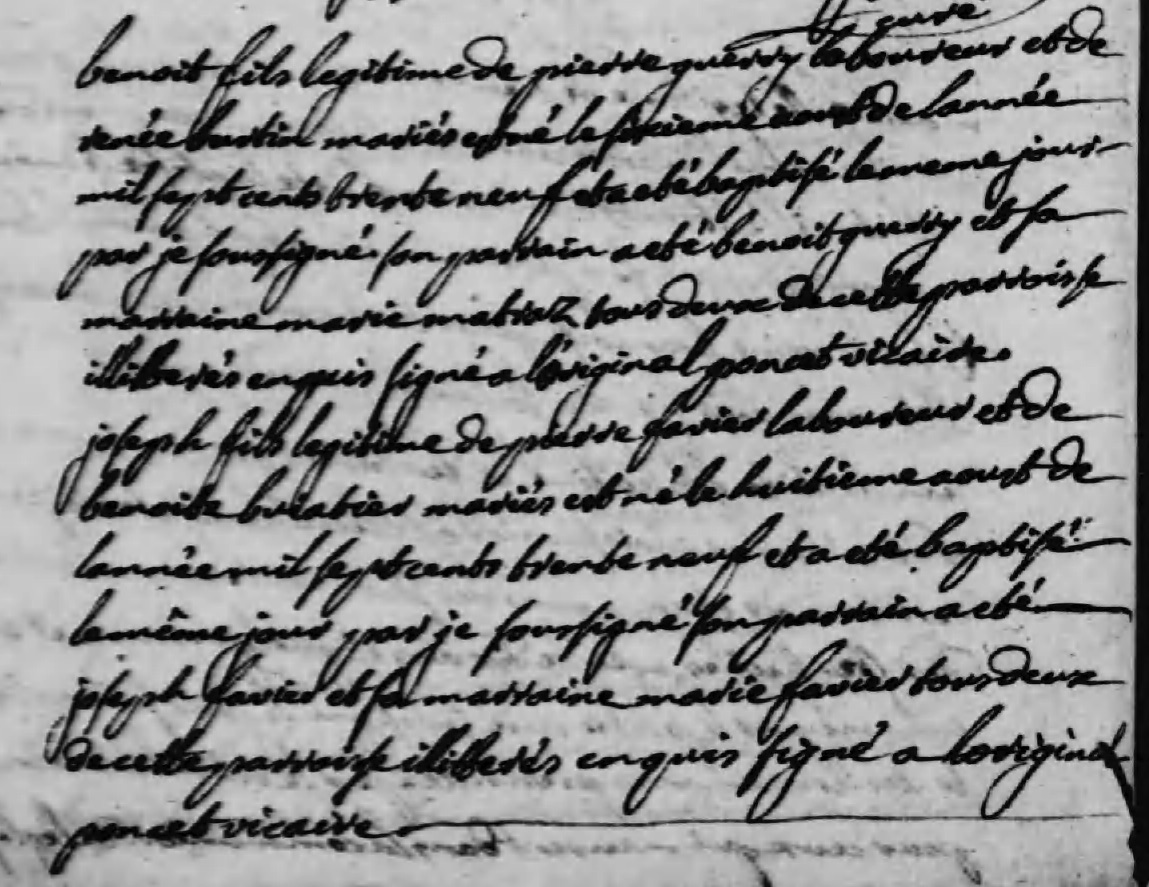 curé
benoit fils legitime de pierre guerry laboureur et de
renée burtin mariés est né le sixieme aoust de lannée
mil sept cents trente neuf et a eté baptisé le meme jour
par je soussigné son parrain a eté benoit guerry et sa
marraine marie matraz tous deux de cette parroisse
illitterés enquis signé a l'original poncet vicaire.
joseph fils legitime de pierre favier laboureur et de
benoite buiatier mariés est né le huitieme aoust de
lannée mil sept cents trente neuf et a eté baptisé
le même jour par je soussigné son parrain a eté
joseph favier et sa marraine marie favier tous deux
de cette parroisse illitterés enquis signé a loriginal
poncet vicaire